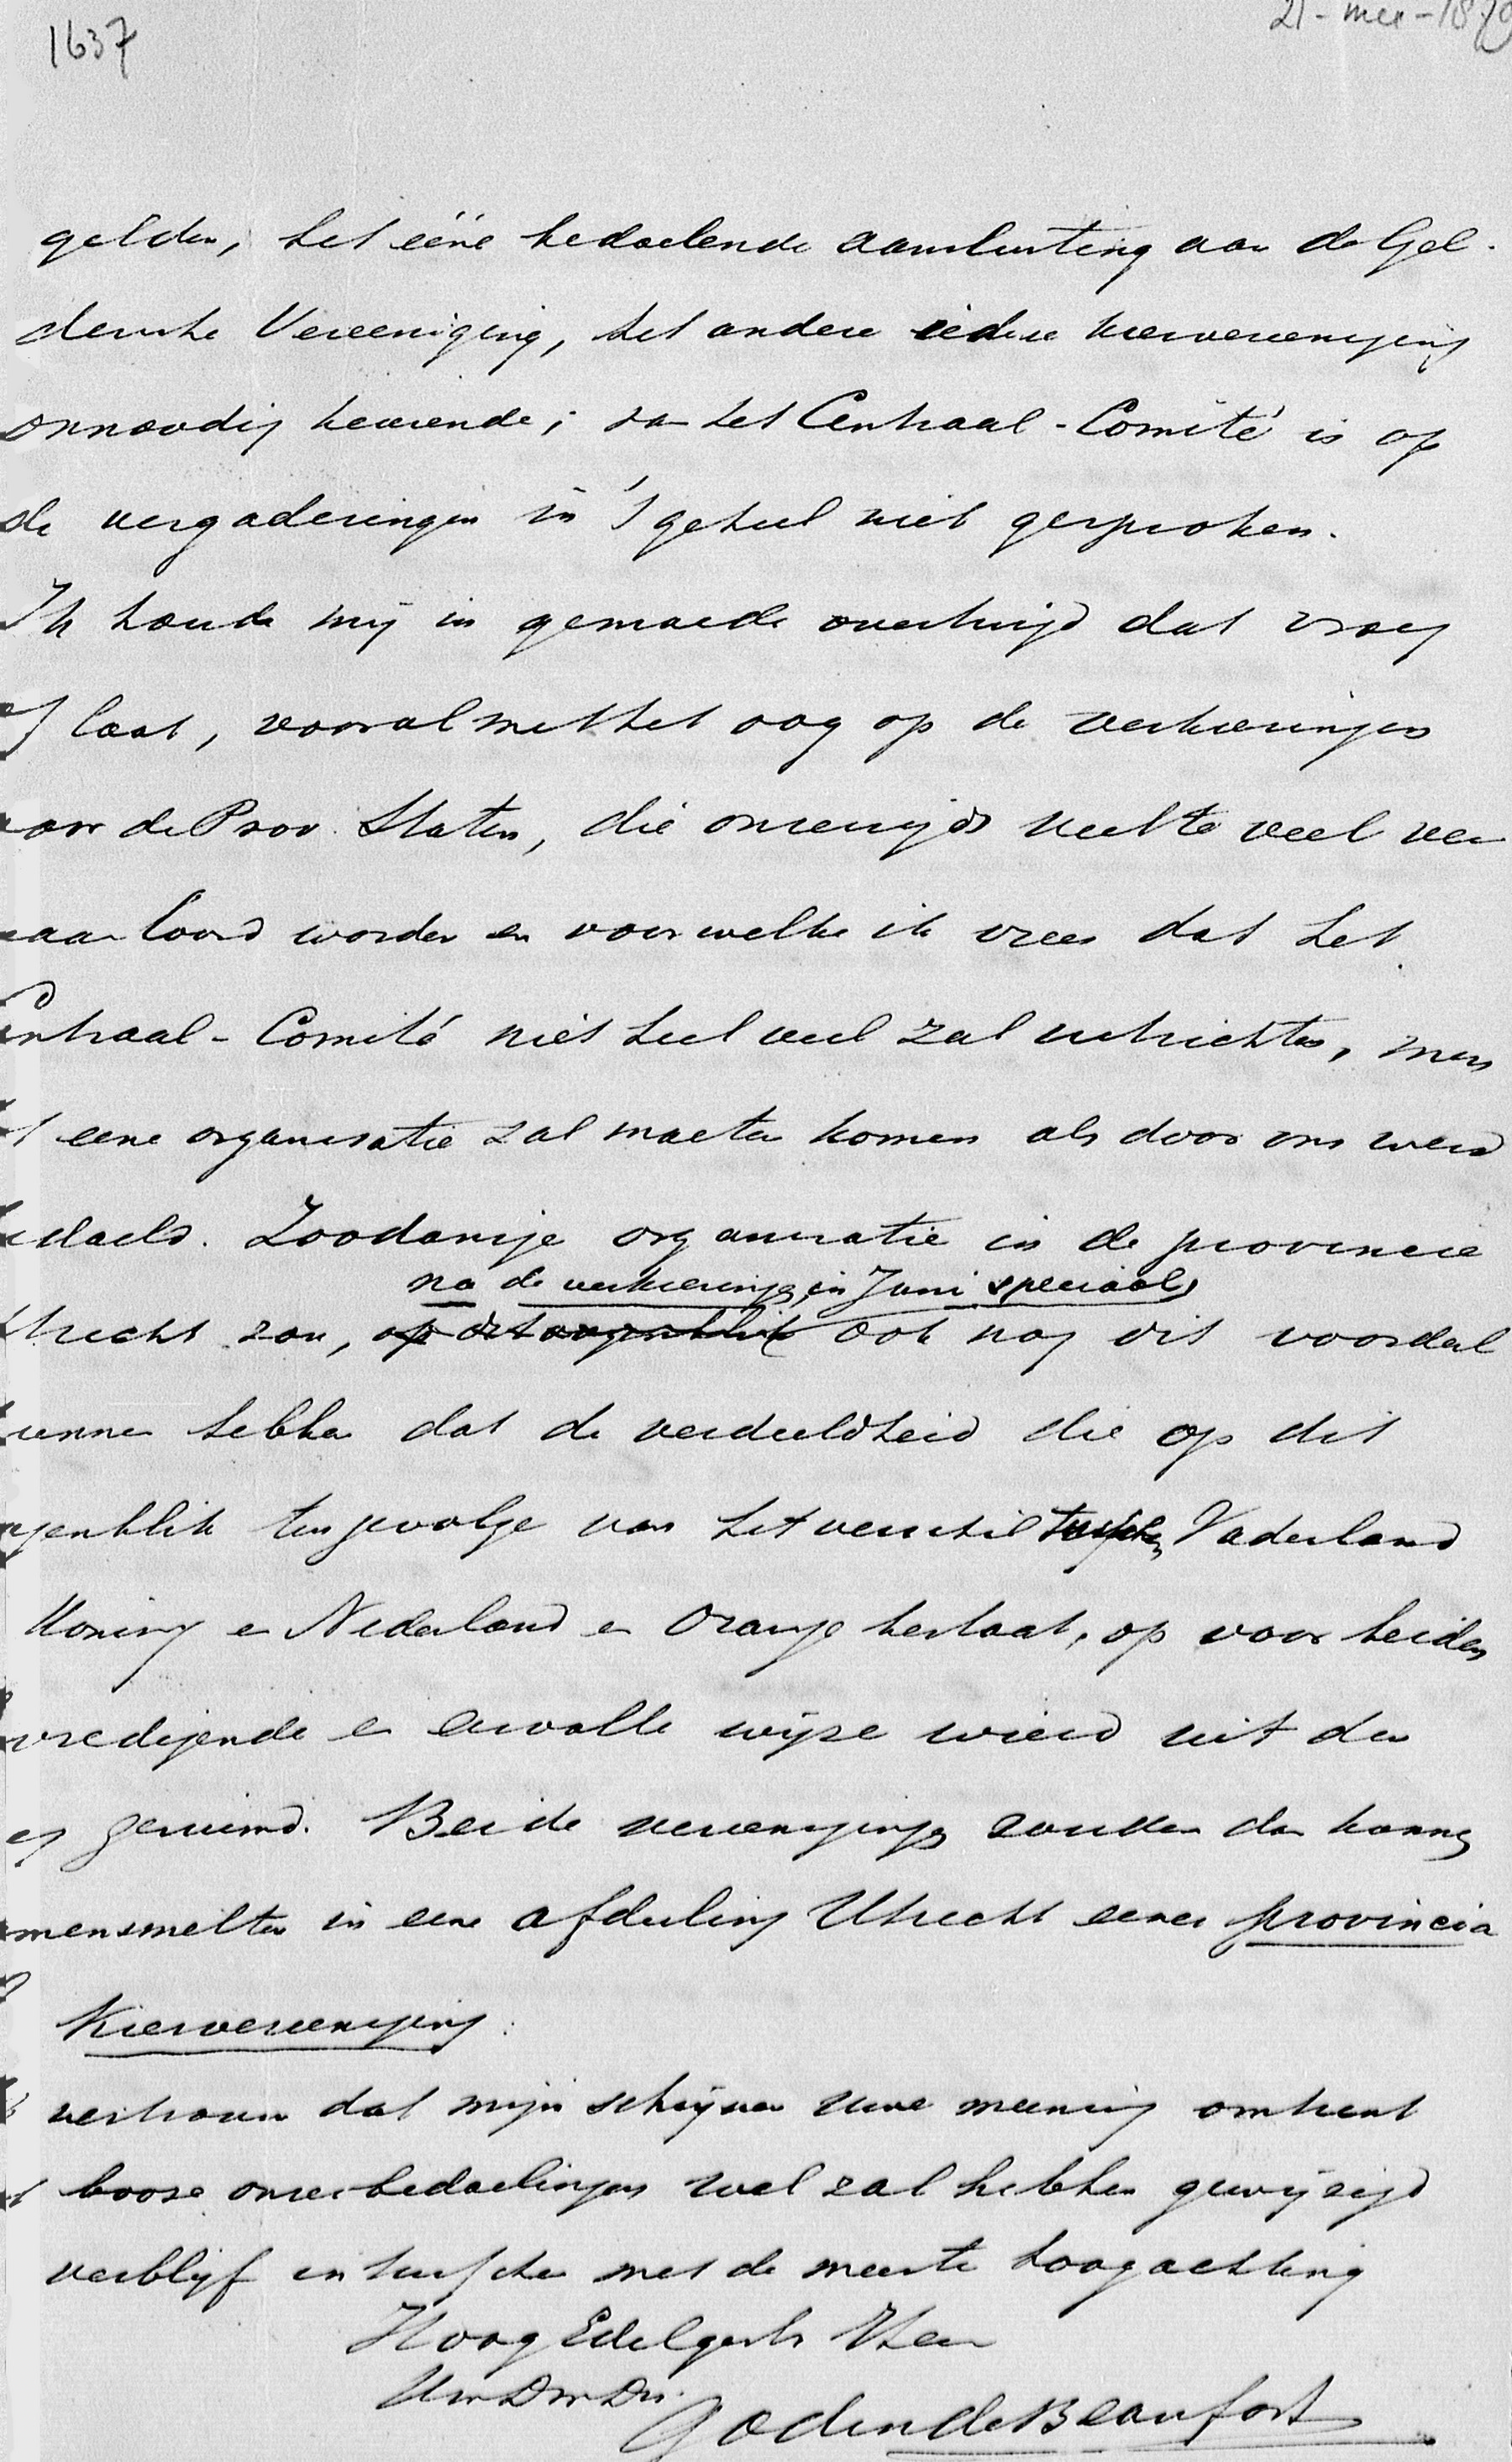 1637
21 - mei - 1879
gelden, het ééne bedoelende aansluiting aan de Gel-
dersche Vereeniging, het andere iedere kiesvereeniging
onnoodig keurende; van het Centraal-Comité is op
de vergaderingen in 't geheel niet gesproken.
Ik houde mij in gemoede overtuigd dat vroeg
of laat, vooral met het oog op de verkiezingen
voor de Prov. Staten, die onzerzijds veel te veel ver
waarloosd worden en voor welke ik vrees dat het
Centraal-Comité niet heel veel zal uitrichten, men
t eene organisatie zal moeten komen als door ons werd
edoeld. Zoodanige organisatie in de provincie
na de verkiezingen in Juni speciaal,
trecht zou, op dit oogenblik ook nog dit voordeel
unnen hebben dat de verdeeldheid die op dit
ogenblik ten gevolge van het verschil tusschen Vaderland
Koning en Nederland en Oranje bestaat, op voor beiden
vredigende en eervolle wijze wierd uit den
eg geruimd. Beide vereenigingen zouden dan kunnen
mensmelten in eene afdeeling Utrecht eener provincia
Kiesvereeniging.
vertrouw dat mijn schrijven uwe meening omtrent
booze onzer bedoelingen wel zal hebben gewijzigd
verblijf intusschen met de meeste hoogachting
HoogEdelgestr Heer
Uw Dw Dr.
JGodin de Beaufort